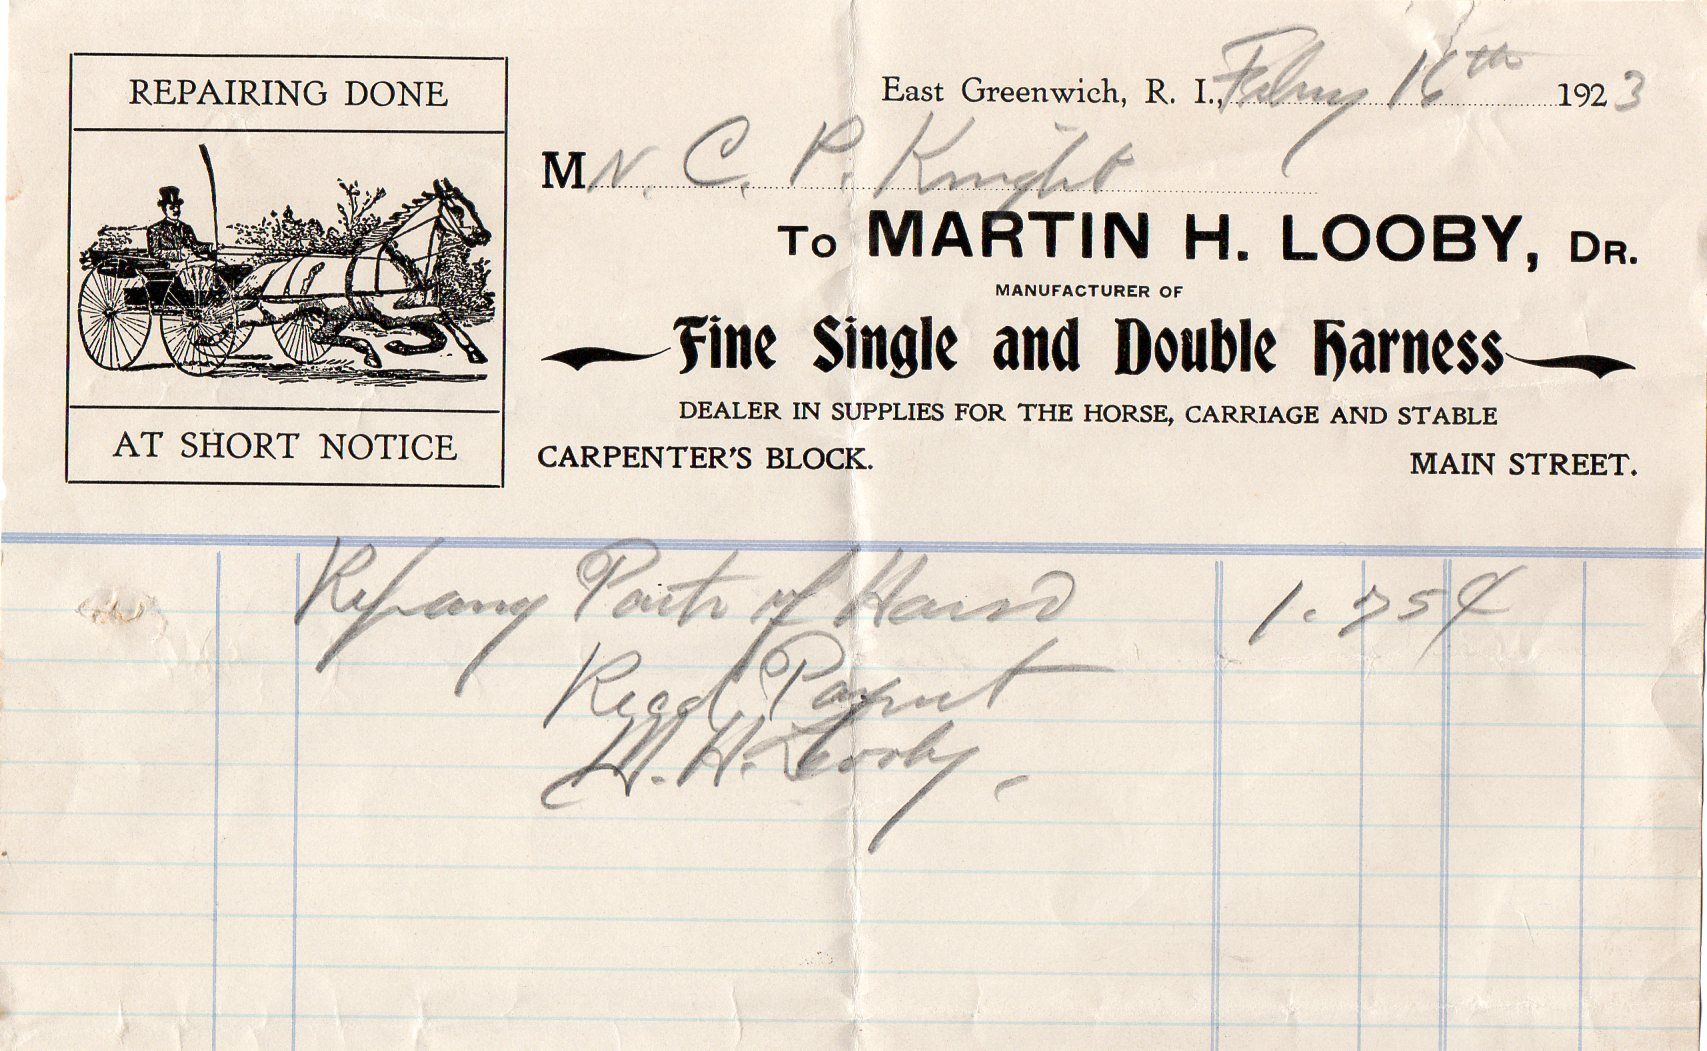 REPAIRING DONE
AT SHORT NOTICE
East Greenwich, R. I., Febry 16th 1923
Mr. C. P. Knight
To MARTIN H. LOOBY, Dr.
MANUFACTURER OF
Fine Single and Double Harness
DEALER IN SUPPLIES FOR THE HORSE, CARRIAGE AND STABLE
CARPENTER'S BLOCK. MAIN STREET.
Parts of 1.75¢
Recd Paymt
M. H. Looby